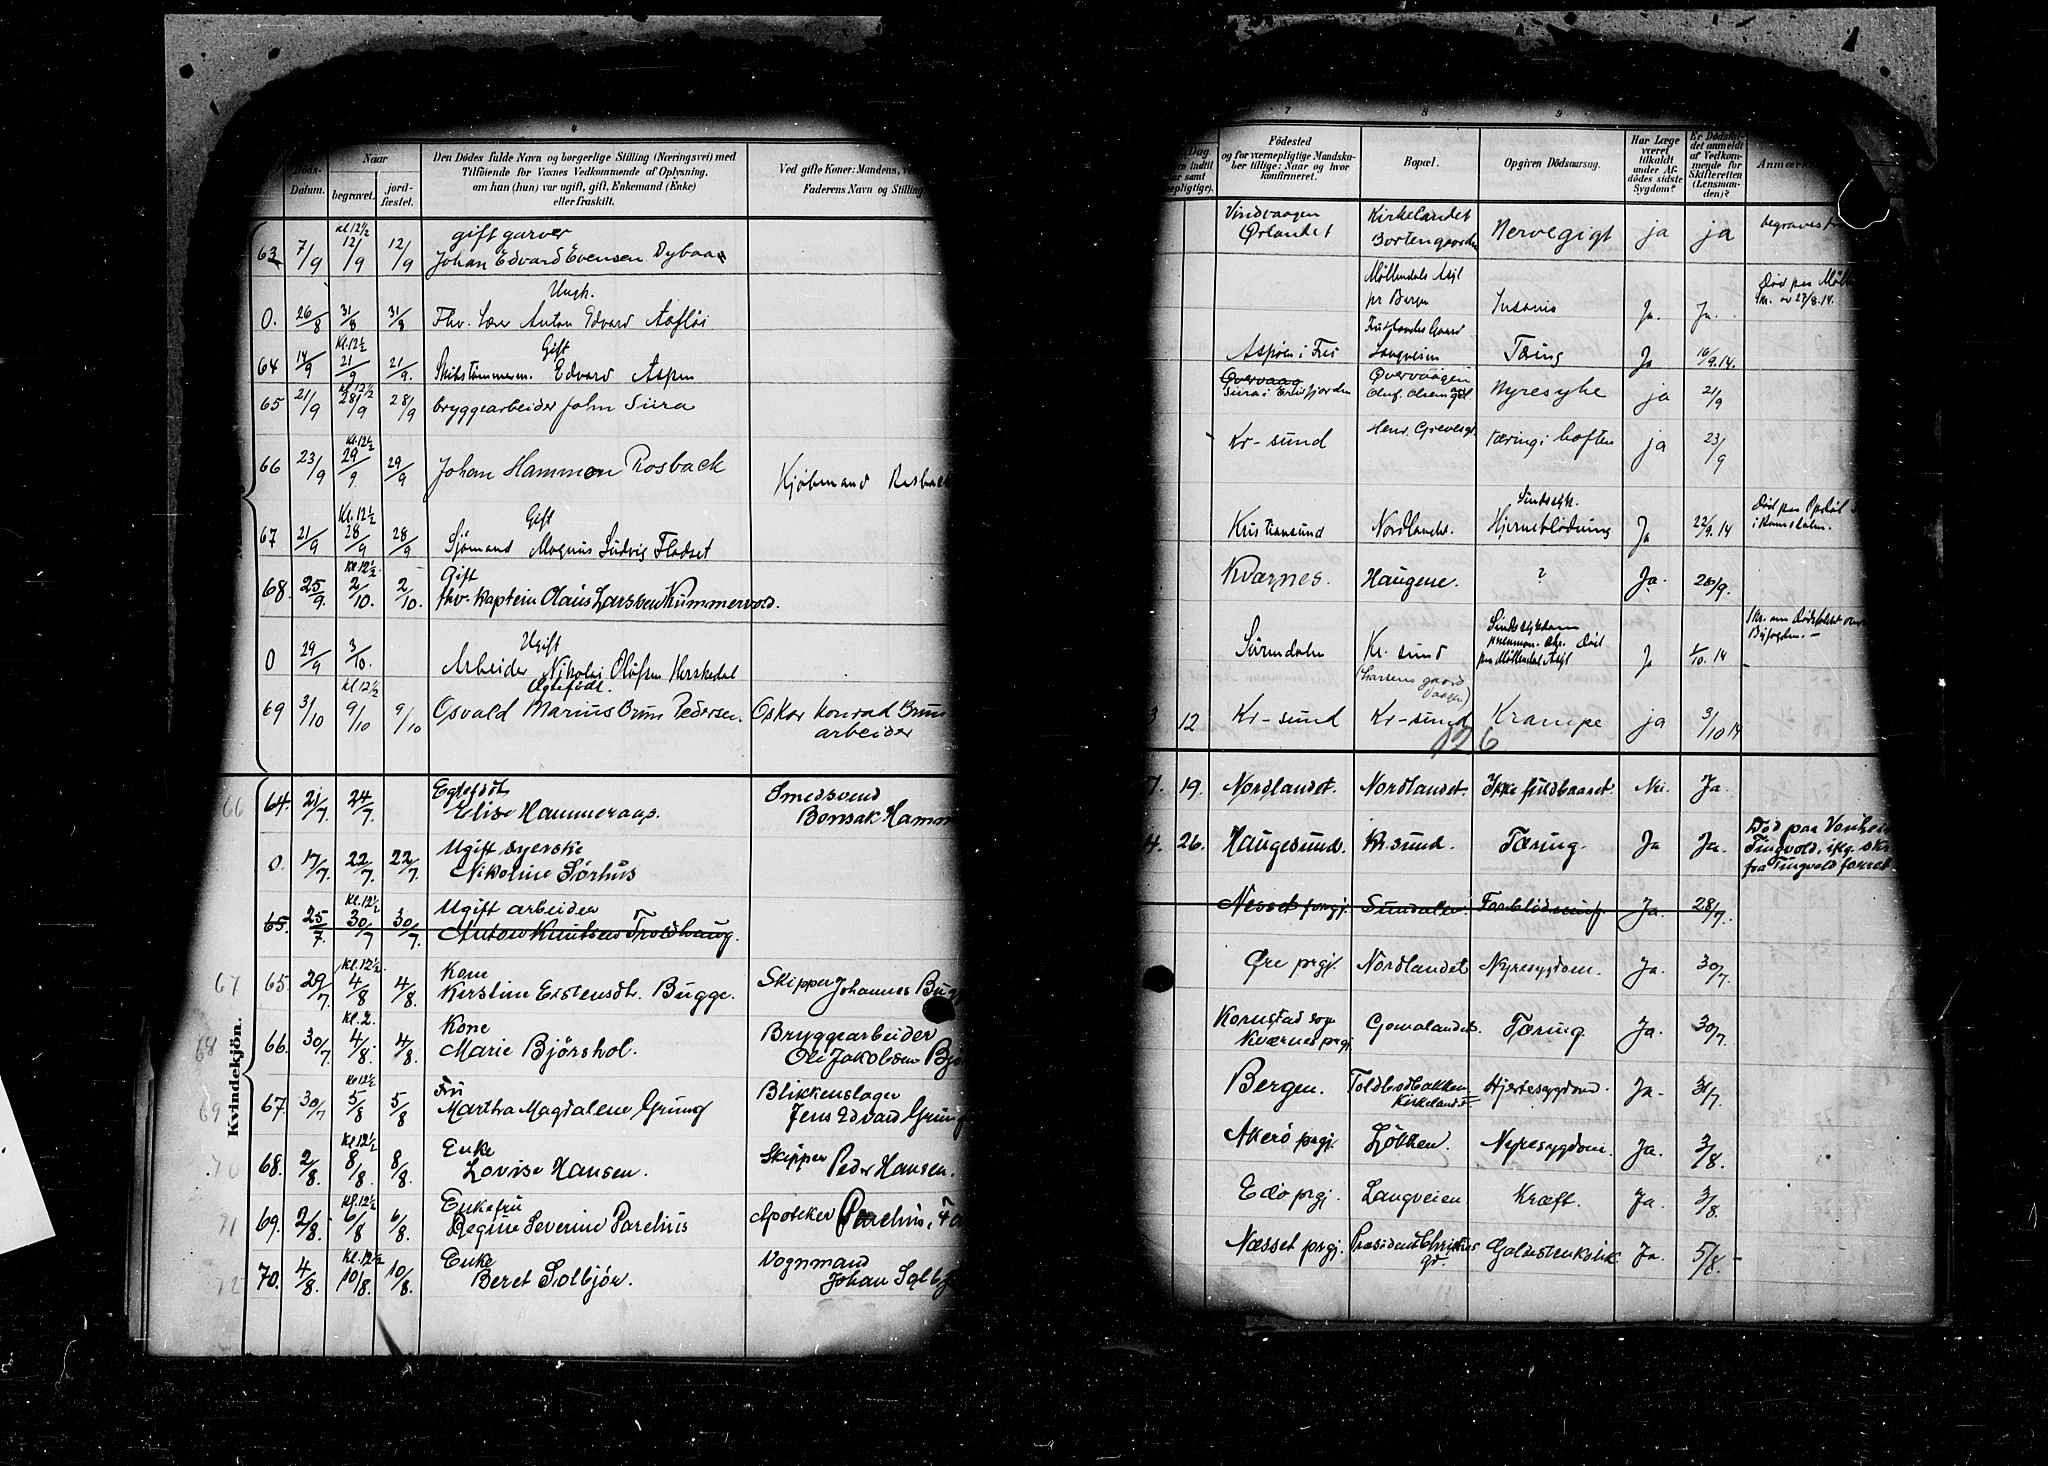 4
Døds-
Datum.
Naar
begravet.
jord-
fæstet.
Den Dødes fulde Navn og borgerlige Stilling (Næringsvei) med
Tilføiende for Voxnes Vedkommende af Oplysning,
om han (hun) var ugift, gift, Enkemand (Enke)
eller fraskilt.
Ved gifte Koner: Mandens, ve
Faderens Navn og Stilling
63 7/9 Kl 12½ 12/9 12/9 gift garver
Johan Edvard Evensen Dybaa
0. 26/8 31/8 31/8 Ungk.
Fhv. Anton Edvard
64 14/9 Kl. 12½ 21/9 21/9. Gift
Edvard Aspen
65 21/9 Kl 12½ 28/9 28/9 bryggearbeider John Siira
66 23/9 Kl. 12½ 29/9 29/9 Johan Hammon Rosback
Kjøbmand
67 21/9 Kl. 12½ 28/9 28/9 Gift
Sjømand Magnus Ludvig Fladset
68. 25/9. Kl. 12½ 2/10. 2/10. Gift
fhv. Kaptein Olaus Larssen Kummervold.
0 29/9 3/10. Ugift
Arbeider Nikolai Olufsen
69 3/10 Kl 12½ 9/10 9/10 Ægtefødt.
Osvald Marius Brun Pedersen. Oskar Konrad Brun
arbeider
Kvindekjön.
66 64. 21/7. 24/7. Egtefødt
Elise Hammeraas. Smedsvend
Bonsak Hamm
0. 17/7. 22/7. 22/7. Ugift syerske
Nikoline Sørhus
65. 25/7. Kl. 12½ 30/7 30/7. Ugift arbeider
Anton Knutsen Troldhaug.
67 65. 29/7. Kl. 12½. 4/8 4/8. Kone
Kirstine Estensdtr. Bugge. Skipper Johannes Bugg
68 66. 30/7. Kl. 2. 4/8. 4/8. Kone
Marie Bjørshol. Bryggearbeider
Ole Jakobsen Bjø
69 67. 30/7 Kl 12½ 5/8 5/8 Fru
Martha Magdalene Grung Blikkenslager
Jens Edvard Grung
70 68. 2/8. Kl. 12½ 8/8. 8/8. Enke
Lovise Hansen. Skipper
Peder Hansen.
71 69. 2/8. Kl. 12½ 6/8 6/8. Enkefru
Regine Severine Parelius Apoteker Parelius,
72 70. 4/8. Kl. 12½ 10/8. 10/8. Enke
Beret Solbjør. Vognmand
Johan Solbjø
7 8 9
Dag.
Fødested
og for værnepligtige Mandska-
ber tillige: Naar og hvor
konfirmeret.
Bopæl.
Opgiven Dødsaarsag.
Har Læge
været
tilkaldt
under Af-
dødes sidste
Sygdom?
Er Dødsfal-
det anmeldt
af Vedkom-
mende for
Skifteretten
(Lensman-
den)?
Anmærk
Vindvaagen
Ørlandet Kirkelandet
Bortengaarden Nervegigt ja ja begraves
Møllendals Asyl
pr Bergen Insania Ja. Ja. Død paa Møll
Aspøen i Frei Langveien Tæring Ja 16/9.14.
Øvervaag
Siira i Eresfjorden Øvervaagen Nyresyke ja 21/9
Kr-sund Tæring i hoften ja 23/9
Kristiansund Nordlandet. Sindssyk.
Hjerneblødning Ja 22/9.14 Død paa Opdøl
i Romsdalen.
Kværnes. Haugene. ? Ja. 26/9.
Surendalen Kr. sund Sindssykdom
paa Møllendal Asyl Ja 1/10. 14
3 12 Kr-sund Kr-sund Krampe ja 3/10 14
126
7. 19. Nordlandet. Nordlandet. Ikke fuldbaaret. Nei. Ja.
4. 26. Haugesund. Kr.sund. Tæring. Ja Ja. Død paa Vonheim
Tingvold, ifg. skr
fra Tingvold
Nesset prgj. Sundalen. Forblødning. Ja. 28/7.
Øre prgj. Nordlandet Nyresygdom. Ja. 30/7.
Kornstad sogn
Kværnes prgj. Gomalandet. Tæring. Ja. 30/7.
Bergen. Toldbodbakken
Kirkelandet Hjertesygdom. Ja. 31/7.
Akerø prgj. Løkken. Nyresygdom. Ja. 3/8.
Edø prgj. Langveien Kræft. Ja. 3/8.
Næsset prgj. Præsident Christies
gd. Galdestenkolik. Ja. 5/8.